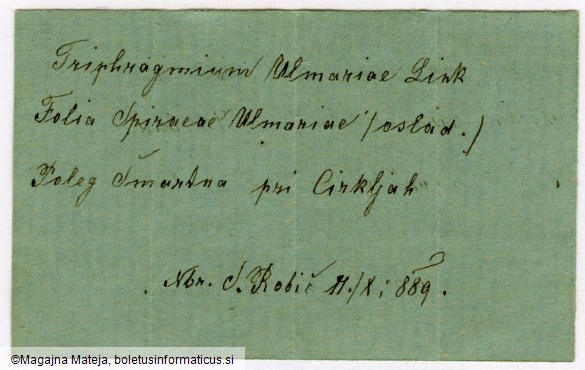 Triphragmium Ulmariae Link
Folia Spiraeae Ulmariae (oslad.)
Poleg Šmartna pri Cirkljah
Nbr. S. Robič 11./X; 889.
©Magajna Mateja, boletusinformaticus.si